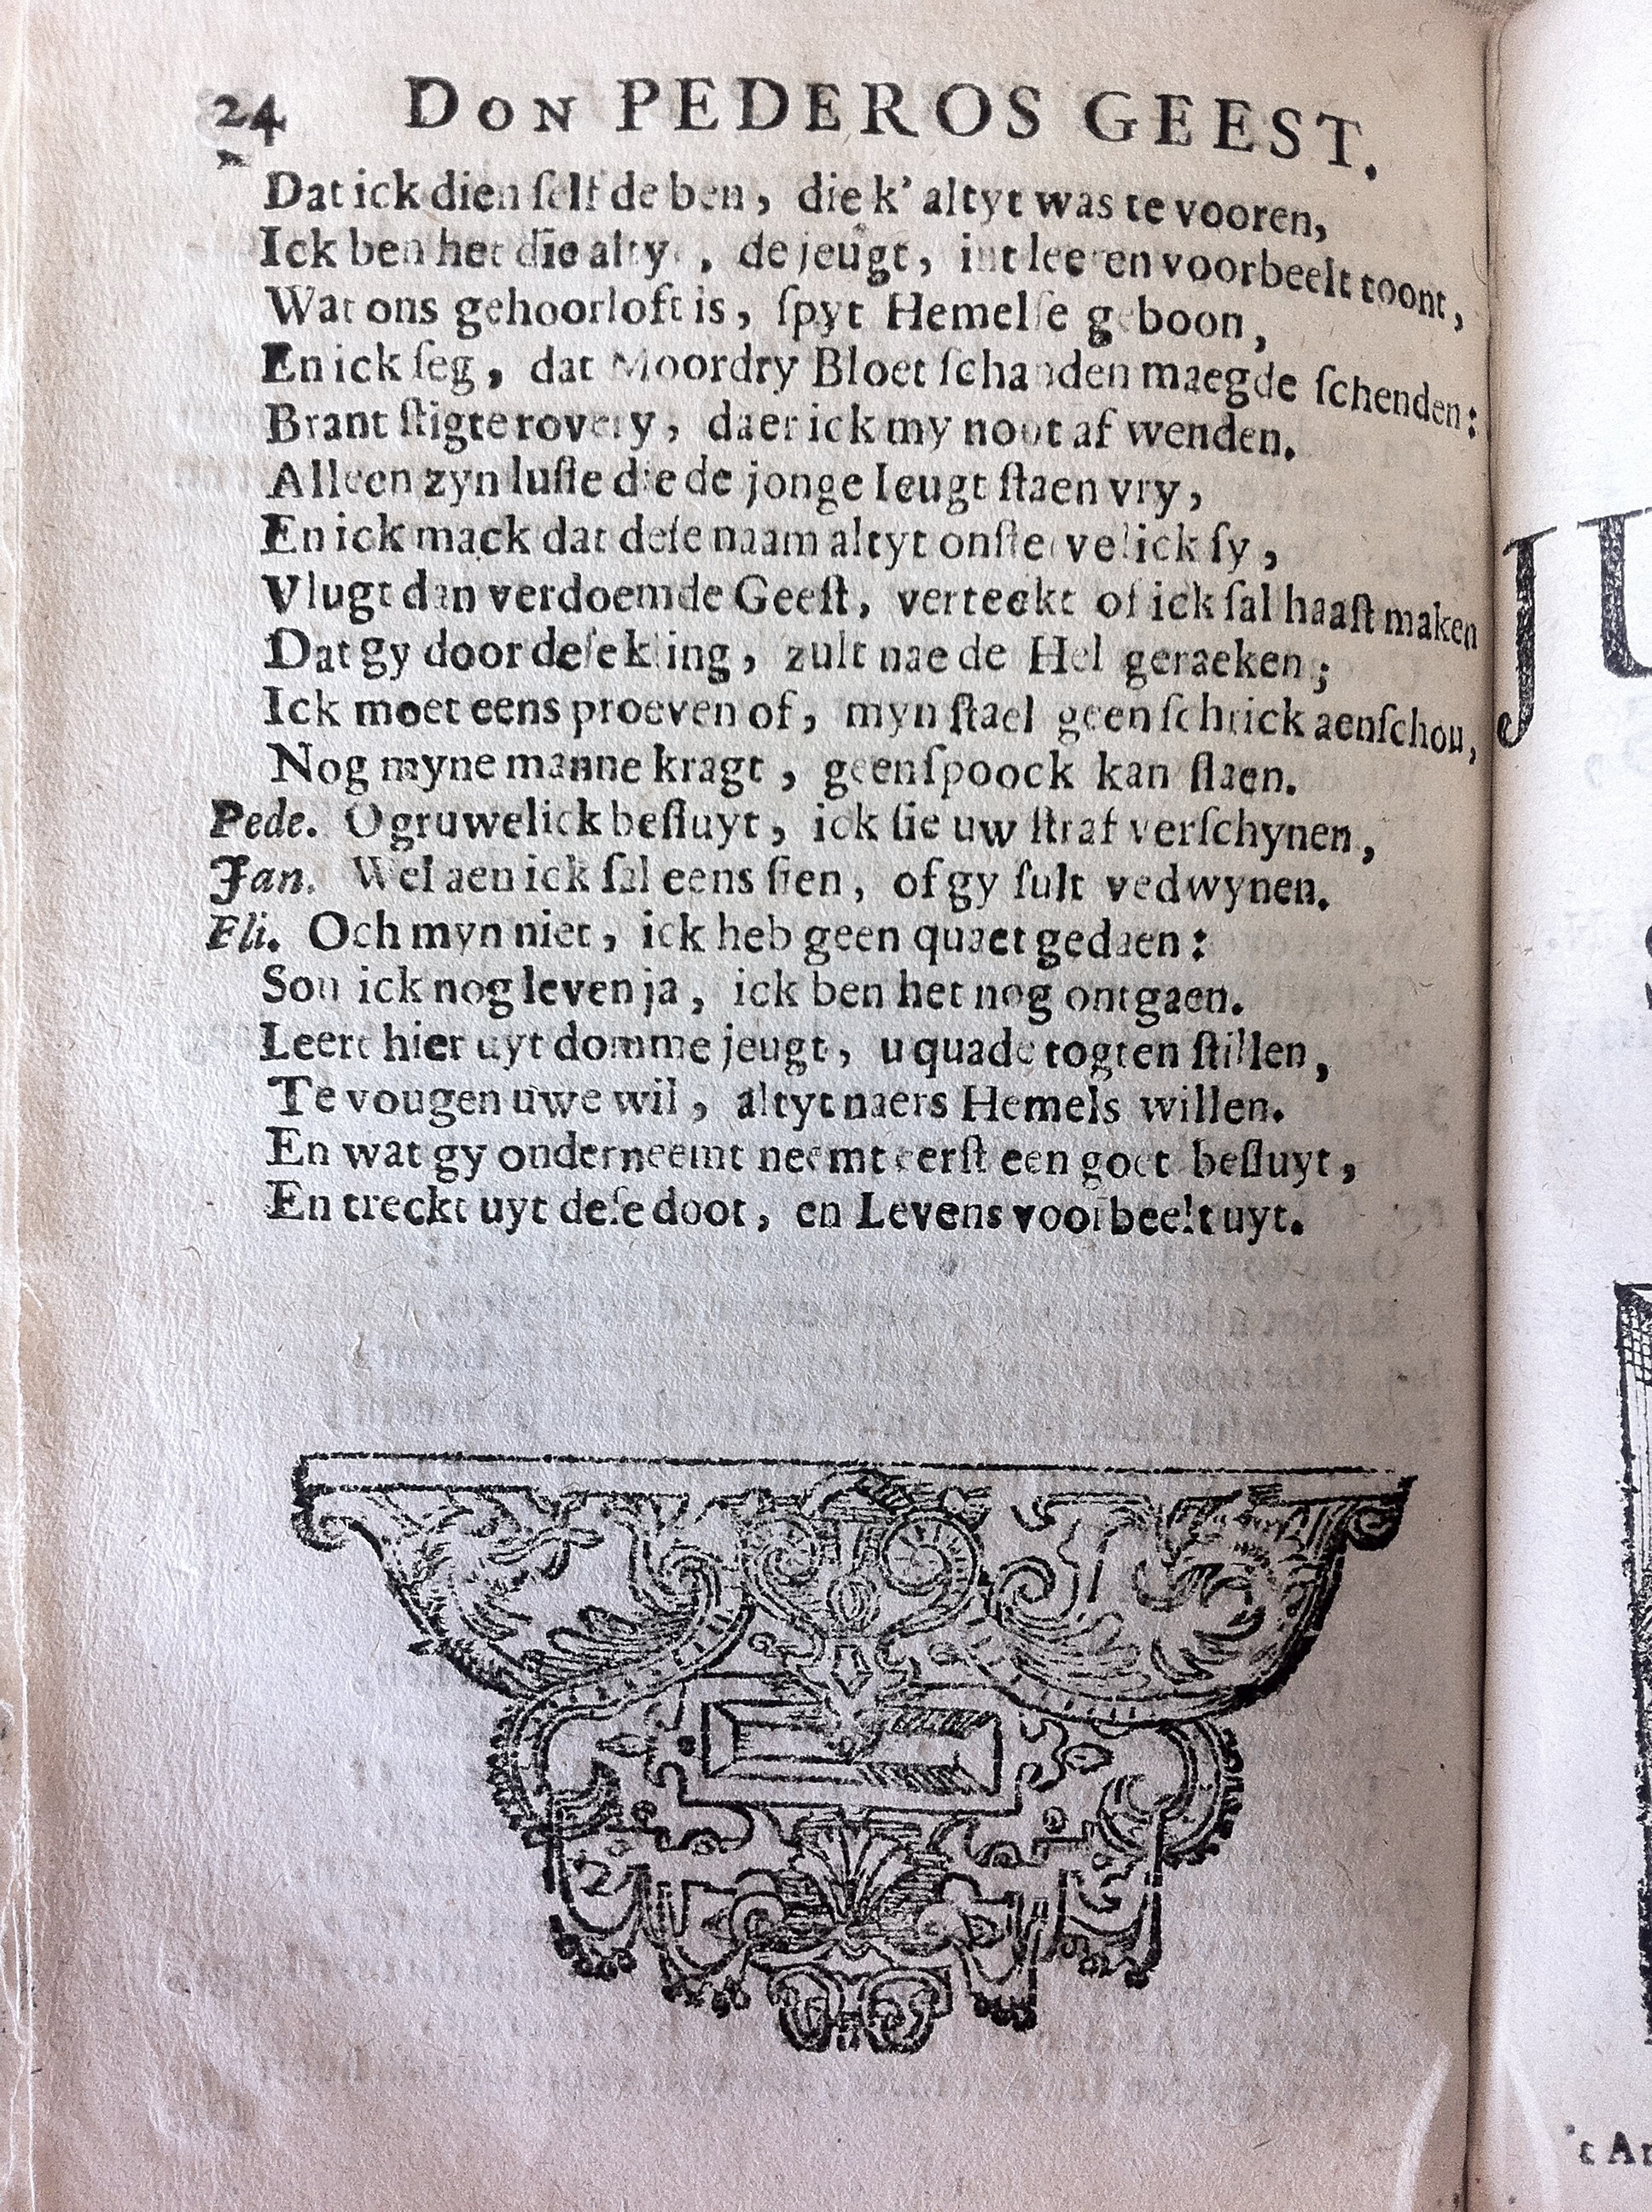 24 DON PEDEROS GEEST.
Dat ick dien ſelf de ben, die k' altyt was te vooren,
Ick ben het die alty, de jeugt, int leeren voorbeelt toont,
Wat ons gehoorloft is, ſpyt Hemelſe geboon,
En ick ſeg, dat Moordry Bloet ſchanden maegde ſchenden:
Brant ſtigte rovery, daer ick my noot af wenden.
Alleen zyn luſte die de jonge Ieugt ſtaen vry,
En ick mack dat deſe naam altyt onſtervelick ſy,
Vlugt dan verdoemde Geeſt, verteckt of ick ſal haaſt maken
Dat gy door deſe kling, zult nae de Hel geraeken;
Ick moet eens proeven of, myn ſtael geen ſchrick aenſchou,
Nog myne manne kragt, geen ſpoock kan ſlaen.
Pede. O gruwelick beſluyt, ick ſie uw ſtraf verſchynen,
Jan. Wel aen ick ſal eens ſien, of gy ſult vedwynen.
Eli. Och myn niet, ick heb geen quaet gedaen:
Sou ick nog leven ja, ick ben het nog ontgaen.
Leert hier uyt domme jeugt, u quade togten ſtillen,
Te vougen uwe wil, altyt naers Hemels willen.
En wat gy onderneemt neemt eerſt een goet beſluyt,
En treckt uyt deſe doot, en Levens voorbeelt uyt.
JU
't